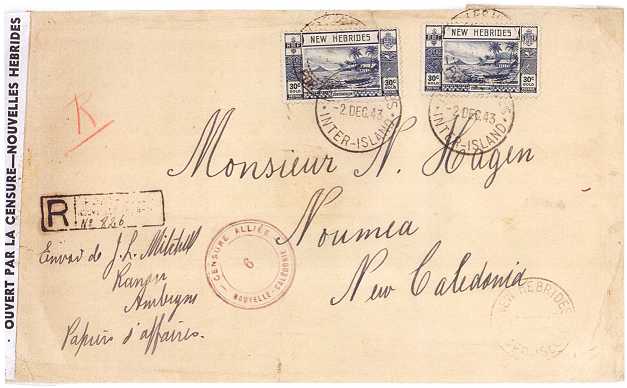 OUVERT PAR LA CENSURE—NOUVELLES HEBRIDES
NEW HEBRIDES
30c 30c
GOLD GOLD
NEW HEBRIDES
30c 30c
GOLD GOLD
-2.DEC.43
·INTER-ISLAND·
-2.DEC.43
·INTER-ISLAND·
R
Monsieur N. Hagen
Noumea
New Caledonia
R
No 226
CENSURE ALLIÉE
6
NOUVELLE-CALÉDONIE
Envoi de J. H. Mitchell
Ranon
Ambrym
Papiers d'affaires.
NEW HEBRIDES